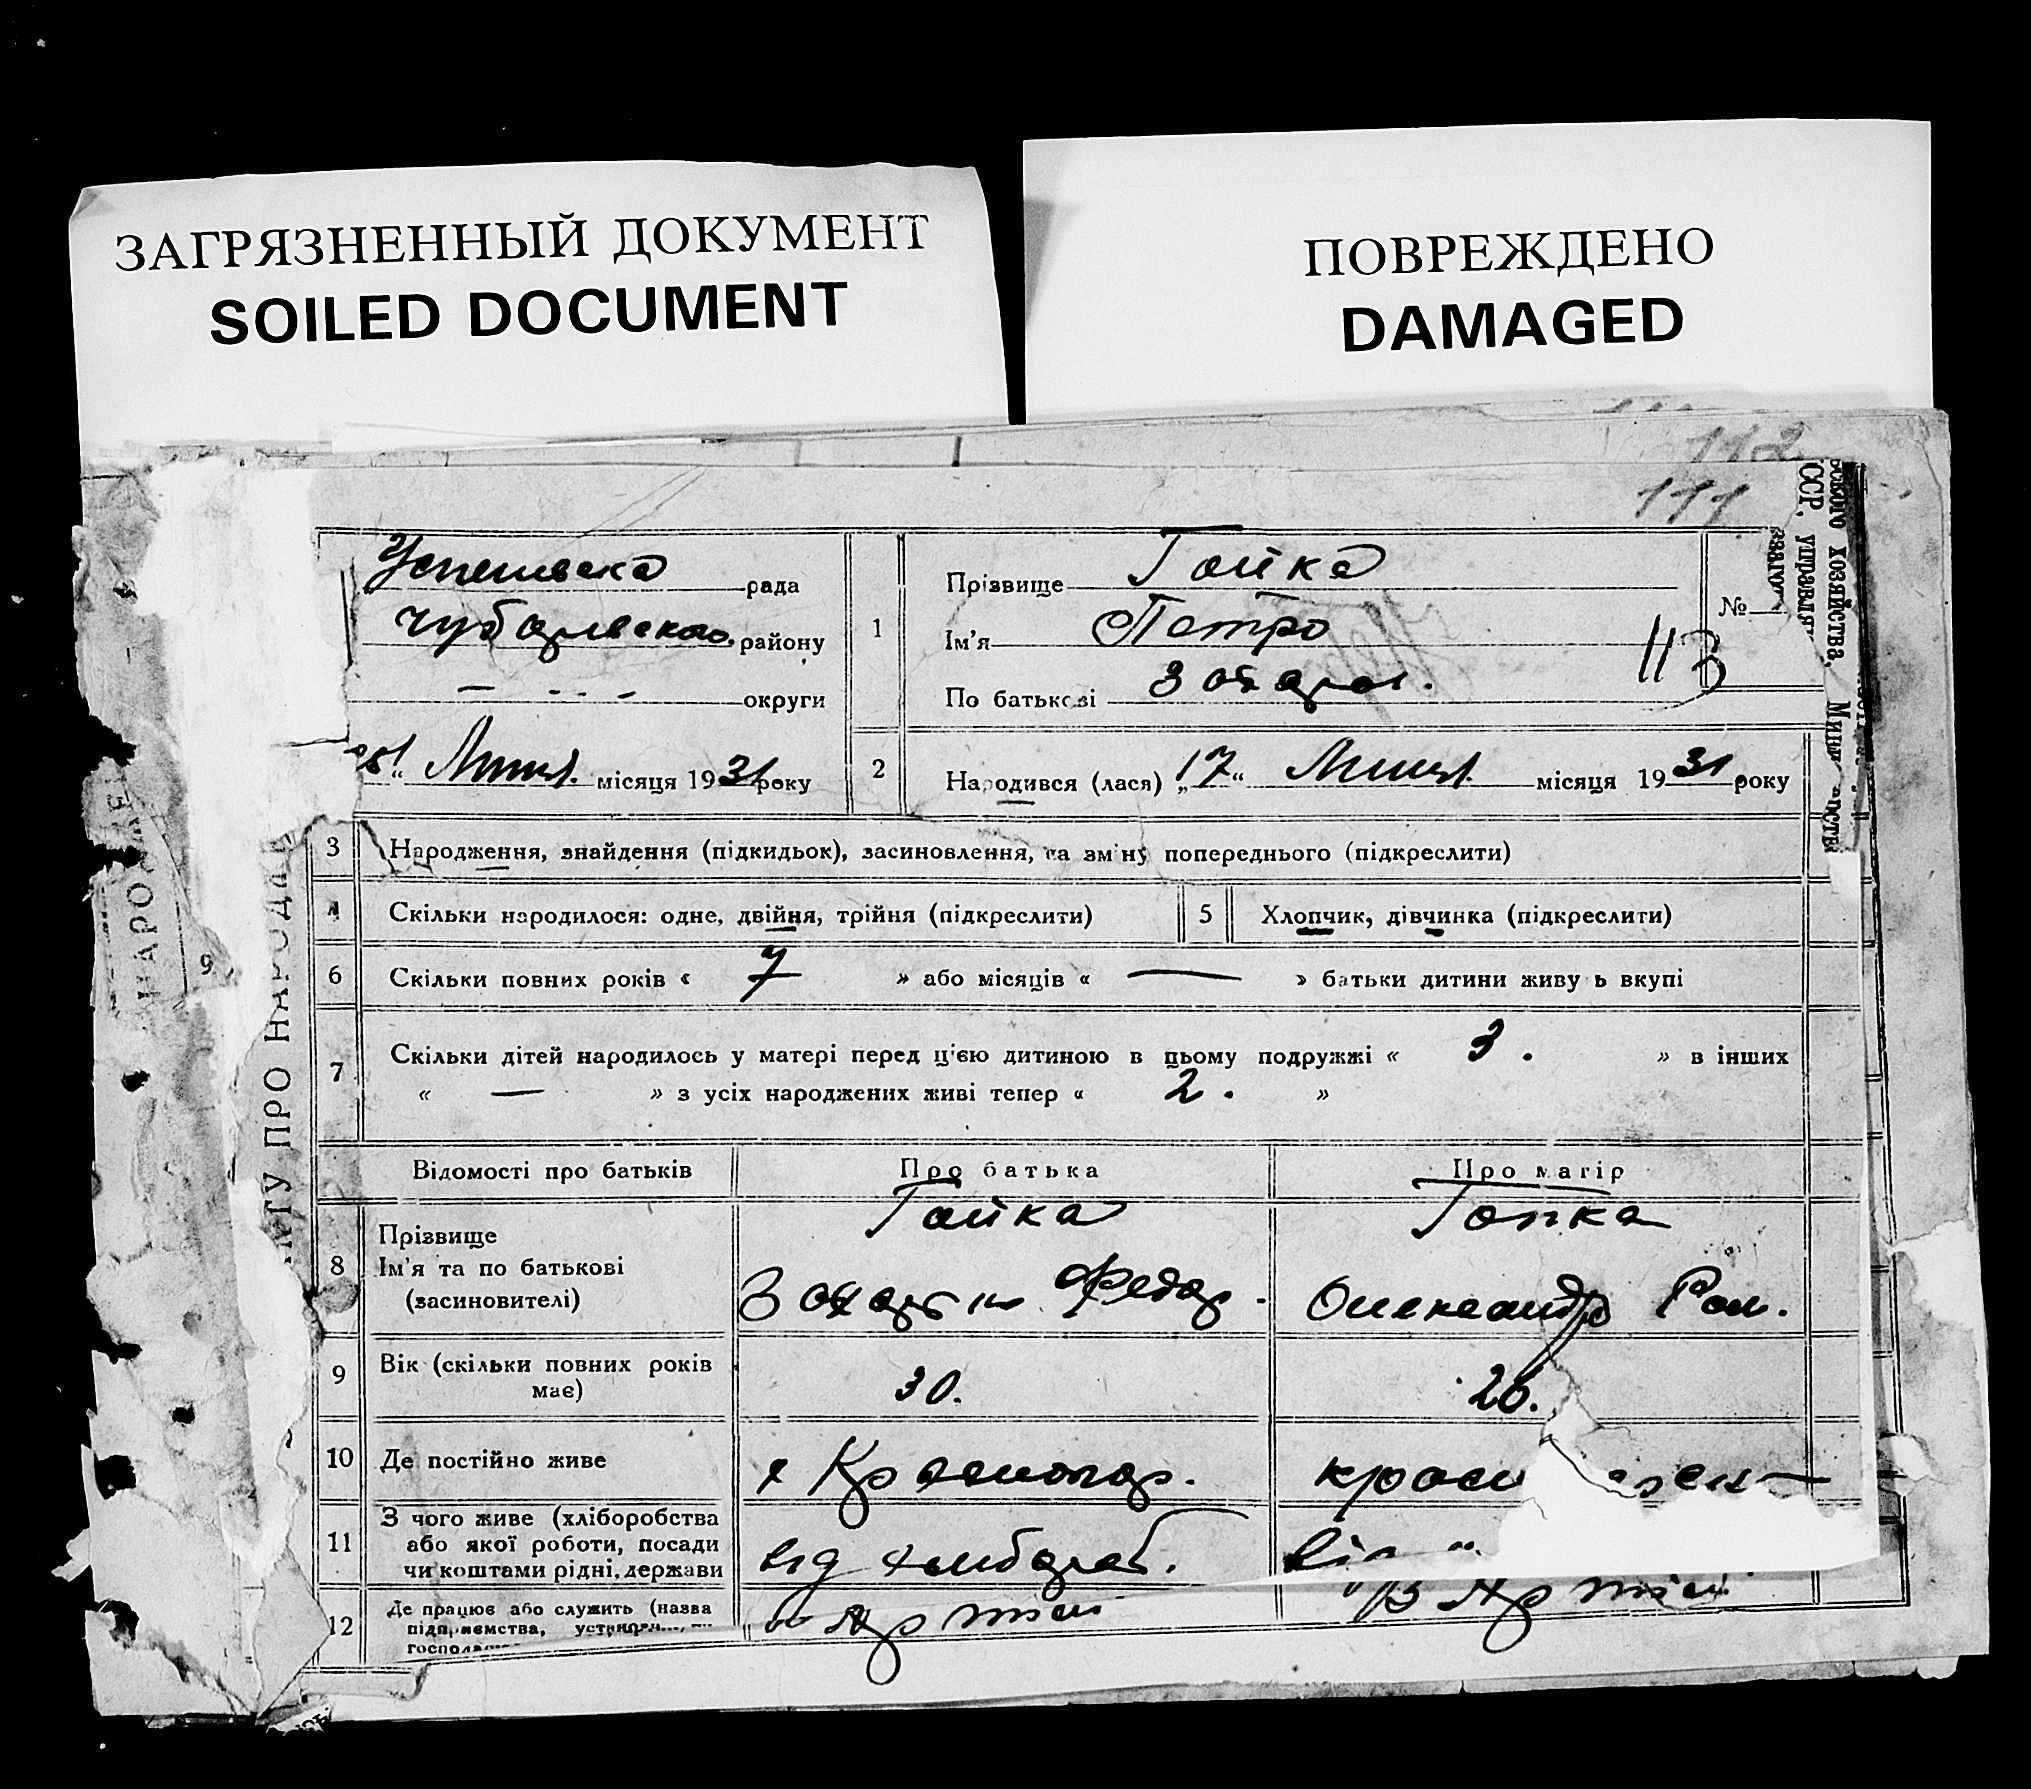 ЗАГРЯЗНЕННЫЙ ДОКУМЕНТ
SOILED DOCUMENT
ПОВРЕЖДЕНО
DAMAGED
112
111
Успенівська рада
Чубарівського району
округи
Липня місяця 1931 року
1
Прізвище Гайка
Ім'я Петро
По батькові Захаров.
№
113
2
Народився (лася) „17“ Липня місяця 1931 року
3 Народження, знайдення (підкидьок), засиновлення, на зміну попереднього (підкреслити)
4 Скільки народилося: одне, двійня, трійня (підкреслити)
5 Хлопчик, дівчинка (підкреслити)
6 Скільки повних років « 7 » або місяців « — » батьки дитини живуть вкупі
7 Скільки дітей народилось у матері перед цією дитиною в цьому подружжі « 3. » в інших
« — » з усіх народжених живі тепер « 2. »
Відомості про батьків
Про батька
Про матір
8 Прізвище
Ім'я та по батькові
(засиновителі)
Гайка
Федор.
Гайка
Олександра Ром.
9 Вік (скільки повних років
має)
30.
26.
10 Де постійно живе
х Краснопор.
11 З чого живе (хліборобства
або якої роботи, посади
чи коштами рідні, держави
від хлібороб.
Від
12 Де працює або служить (назва
підприємства,
В Артілі
В Артілі
9